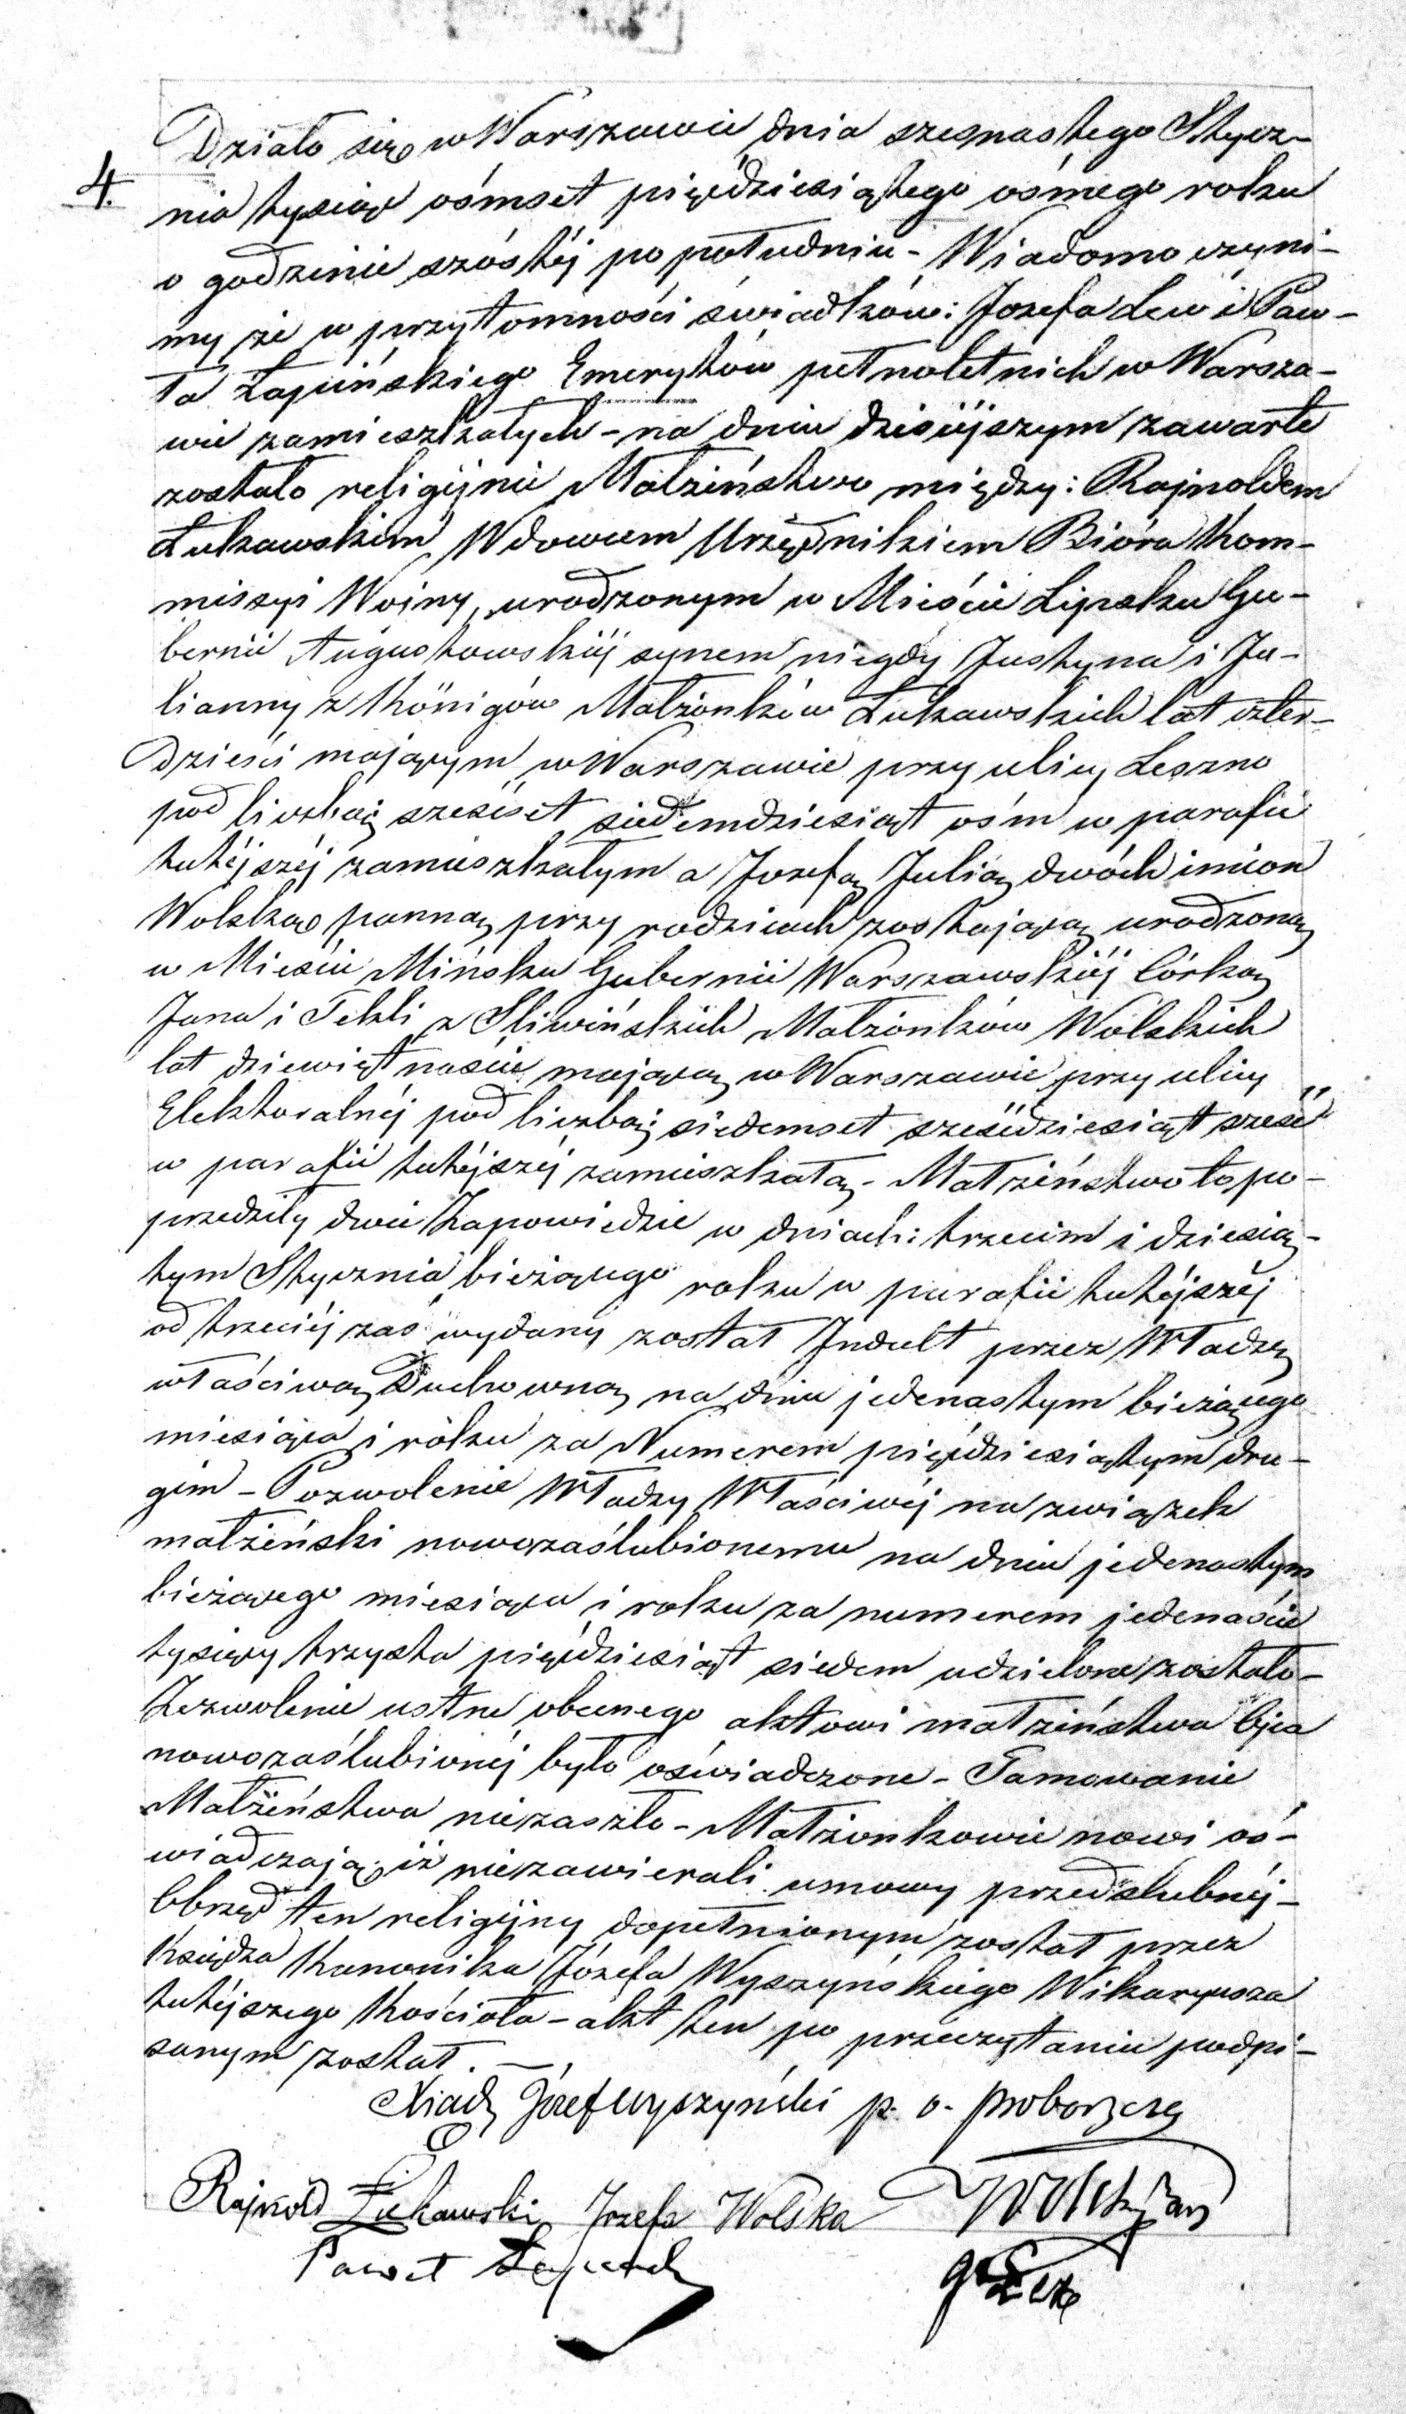 4.
Działo się w Warszawie dnia szesnastego Stycz-
nia tysiąc ośmset pięćdziesiątego ósmego roku
o godzinie szóstéj po południu - Wiadomo czyni-
my że w przytomności świadków: Jozefa Lew i Paw-
ła Łapińskiego Emerytów pełnoletnich w Warsza-
wie zamieszkałych - na dniu dzisiéjszym zawarte
zostało religijnie Małżeństwo między: Rajnoldem
Łukawskim, Wdowcem Urzędnikiem Bióra Kom-
missyi Wojny, urodzonym w Mieście Lipsku Gu-
bernii Augustowskiéj synem niegdy Justyna i Ju-
lianny z Königów Małżonków Łukawskich lat czter-
dzieści mającym w Warszawie przy ulicy Leszno
pod liczbą sześćset siedemdziesiąt ośm w parafii
tutéjszéj zamieszkałym a Jozefą Julią dwóch imion
Wolską panną przy rodzicach zostającą urodzoną
w Mieście Mińsku Gubernii Warszawskiéj Córką
Jana i Tekli z Śliwińskich Małżonków Wolskich
lat dziewiętnaście mającą w Warszawie przy ulicy
Elektoralnéj pod liczbą siedemset sześćdziesiąt sześć
w parafii tutéjszéj zamieszkałą - Małżeństwo to po-
przedziły dwie Zapowiedzie w dniach: trzecim i dziesią-
tym Stycznia bieżącego roku w parafii tutéjszéj
od trzeciéj zaś wydany został Indult przez Władzę
właściwą Duchowną na dniu jedenastym bieżącego
miesiąca i roku za Numerem pięćdziesiątym dru-
gim - Pozwolenie Władzy Właściwéj na związek
małżeński nowozaślubionemu na dniu jedenastym
bieżącego miesiąca i roku za numerem jedenaście
tysięcy trzysta pięćdziesiąt siedem udzielone zostało -
Zezwolenie ustne obecnego aktowi małżeństwa Ojca
nowozaślubionéj było oświadczone - Tamowanie
Małżeństwa niezaszło - Małżonkowie nowi oś-
wiadczają iż niezawierali umowy przedślubnéj -
Obrzęd ten religijny dopełnionym został przez
Księdza Kanonika Józefa Wyszyńskiego Wikaryusza
tutéjszego Kościoła - akt ten po przeczytaniu podpi-
sanym został. -
Xiądz Józef Wyszyński p. o. proboszcza
Rajnold Łukawski Jozefa Wolska Wolski Jan
Paweł